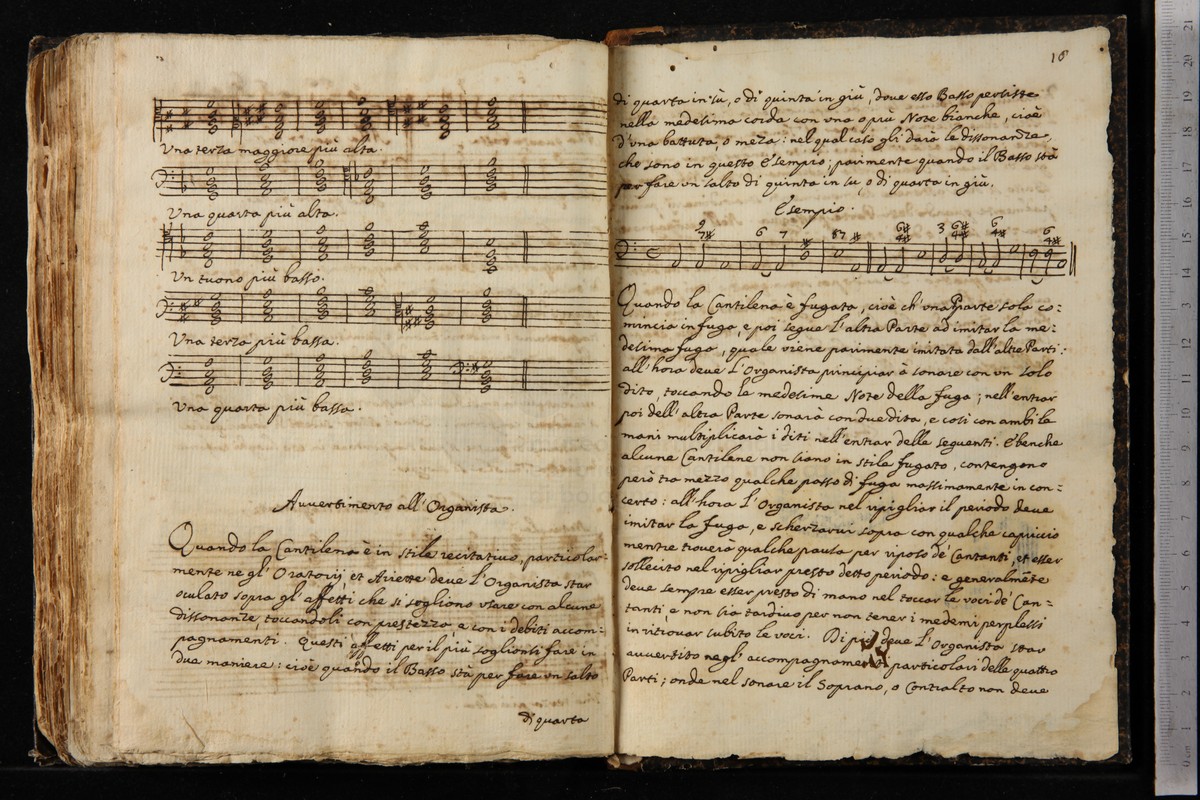 Una terza maggiore più alta.
Una quarta più alta.
Un tuono più basso.
Una terza più bassa.
Una quarta più bassa.
Avvertimento all'Organista.
Quando la Cantilena è in stile recitativo, particolar=
mente negl'Oratorij, et Ariette deve l'Organista star
oculato sopra gl'affetti che si sogliono usare con alcune
dissonanze toccandoli con prestezza, e con i debiti accom=
pagnamenti. Questi affetti per il più soglionsi fare in
due maniere: cioè quando il Basso stà per fare un salto
di quarta
16
di quarta in sù, o di quinta in giù, dove esso Basso persiste
nella medesima corda con una o più Note bianche, cioè
d'una battuta, o meza: nel qual caso gli darà le dissonanze,
che sono in questo Esempio; parimente quando il Basso stà
per fare un salto di quinta in su, o di quarta in giù.
Esempio.
Quando la Cantilena è fugata, cioè ch'una Parte sola co=
mincia in fuga, e poi segue l'altra Parte ad imitar la me=
desima fuga, quale viene parimente imitata dall'altre Parti:
all'hora deve l'Organista principiar à sonare con un solo
dito, toccando le medesime Note della fuga; nell'entrar
poi dell'altra Parte sonarà con due dita, e così con ambi le
mani multiplicarà i diti nell'entrar delle seguenti. E benche
alcune Cantilene non siano in stile fugato, contengono
però tra mezzo qualche passo di fuga massimamente in con=
certo: all'hora l'Organista nel ripigliar il periodo deve
imitar la fuga, e scherzarvi sopra con qualche capricio
mentre troverà qualche pausa per riposo de' Cantanti, et esser
sollecito nel ripigliar presto detto periodo: e generalmēte
deve sempre esser presto di mano nel toccar le voci de' Can=
tanti, e non sia tardivo per non tener i medemi perplessi
in ritrovar subito le voci. Di più deve l'Organista star
avvertito negl'accompagnamenti particolari delle quattro
Parti; onde nel sonare il Soprano, o Contralto non deve